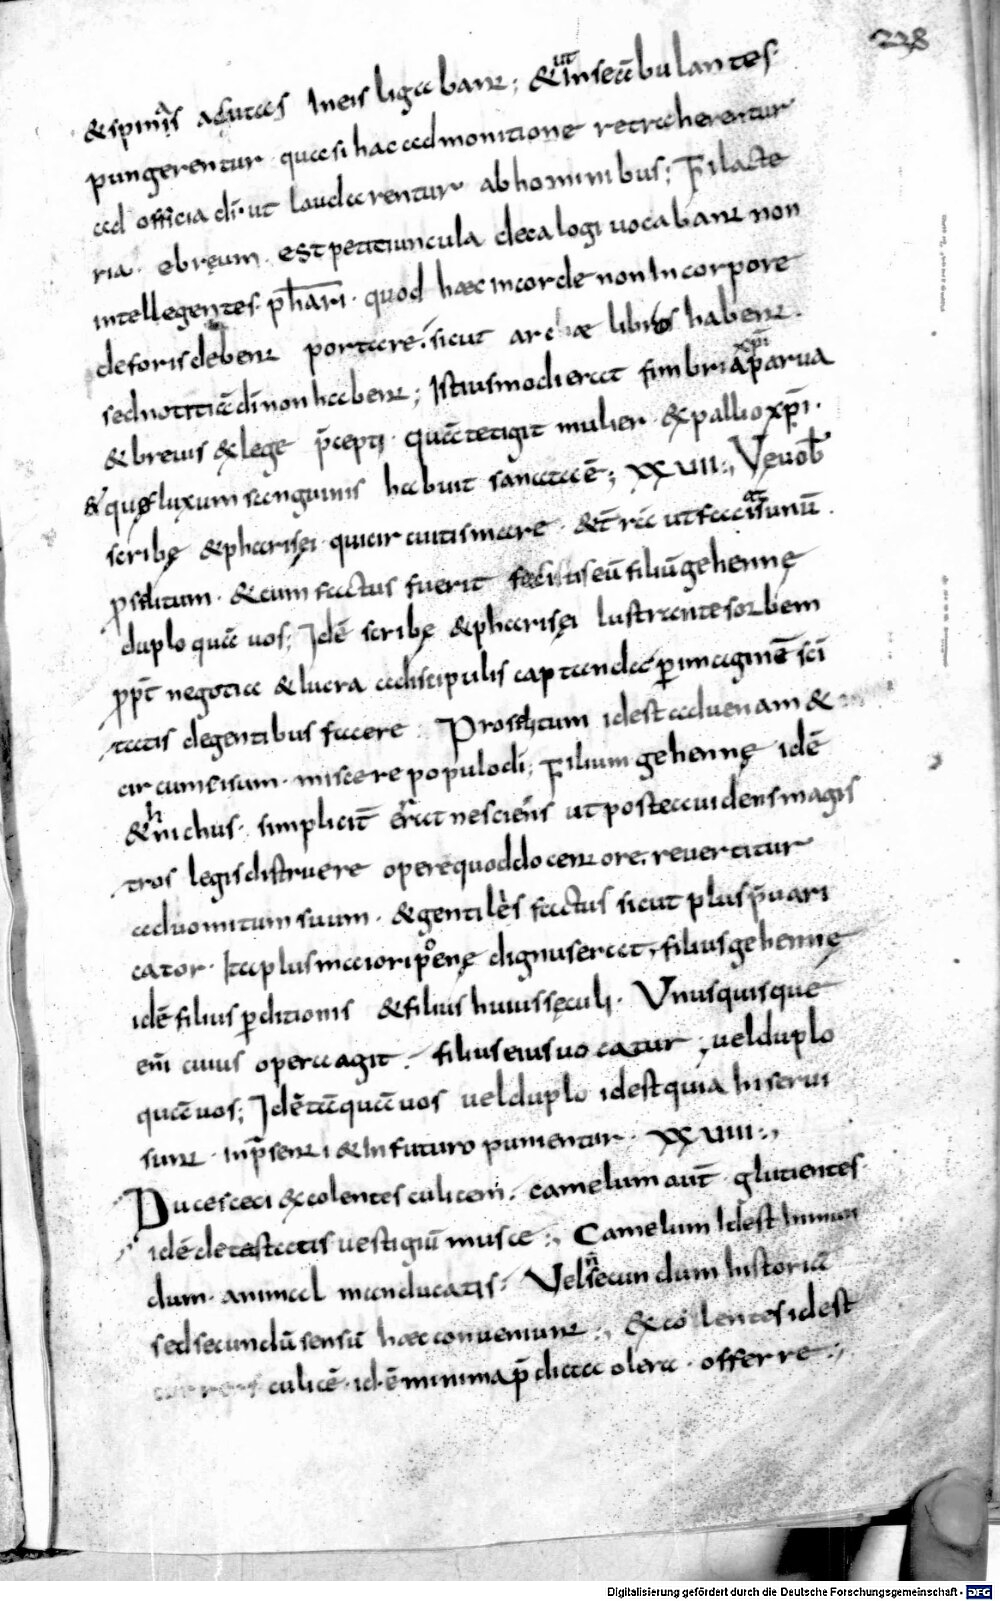 228
& spinas acutas In eis ligabant; & ut Insed&bulantes
pungerentur · quasi hac admonitione retraherentur
ad officia di · ut laudarentur ab hominibus; Filacte
ria · ebreum · est petitiuncula decalogi uocabant non
intellegentes · phari · quod hæc in corde non In corpore
deforis debent portare · sicut archæ libros habent ·
sed notitiā dī non habent; Istius modi erat fimbria xpi parua
& breuis & lege p̄cepti · quā tetigit mulier · & pallio xp̄i ·
& quę fluxum sanguinis habuit sanatā ē; XXVIII :, Vę uob̄
scribę & pharisęi · qui circuitis mare · & t̄rā ut faciatis unū ·
proselitum · & cum factus fuerit fecistis eū filiū gehennę
duplo quā uos; Idē scribę & pharisęi lustrantes orbem
ꝓpt̄ negotia & lucra a discipulis captanda ꝑ imaginē sc̄i
tatis degentibus facere · Proselitum id est aduenam &
circumcisum · miscere populo di; Filium gehennę idē
& hnichus · simplicit̄ errat nesciens ut postea uidens magis
tros legis distruere opere quod docent ore · reuertitur
ad uomitum suum · & gentiles factus sicut plus p̄uari
cator · Ita plus maiori poenę dignus erat, filius gehennę
idē filius ꝑditionis & filius huius sęculi · Vnusquisque
eni cuius opera agit · filius eius uocatur ; uel duplo
quā uos; Idē tā quā uos uel duplo id est quia hi serui
sunt · In p̄senti & In futuro punientur · XXVIIII :,
Duces ceci & colentes culicem · camelum aut̄ · glutientes
idē detestatis uestigiū musce :, Camelum Id est Inmun
dum · animal manducatis · Vel n̄ secundum historiā
sed secundū sensū hæc conueniunt :, & colentes id est
culicē · id ē minima p̄dicta olera · offerre :,
Digitalisierung gefördert durch die Deutsche Forschungsgemeinschaft - DFG